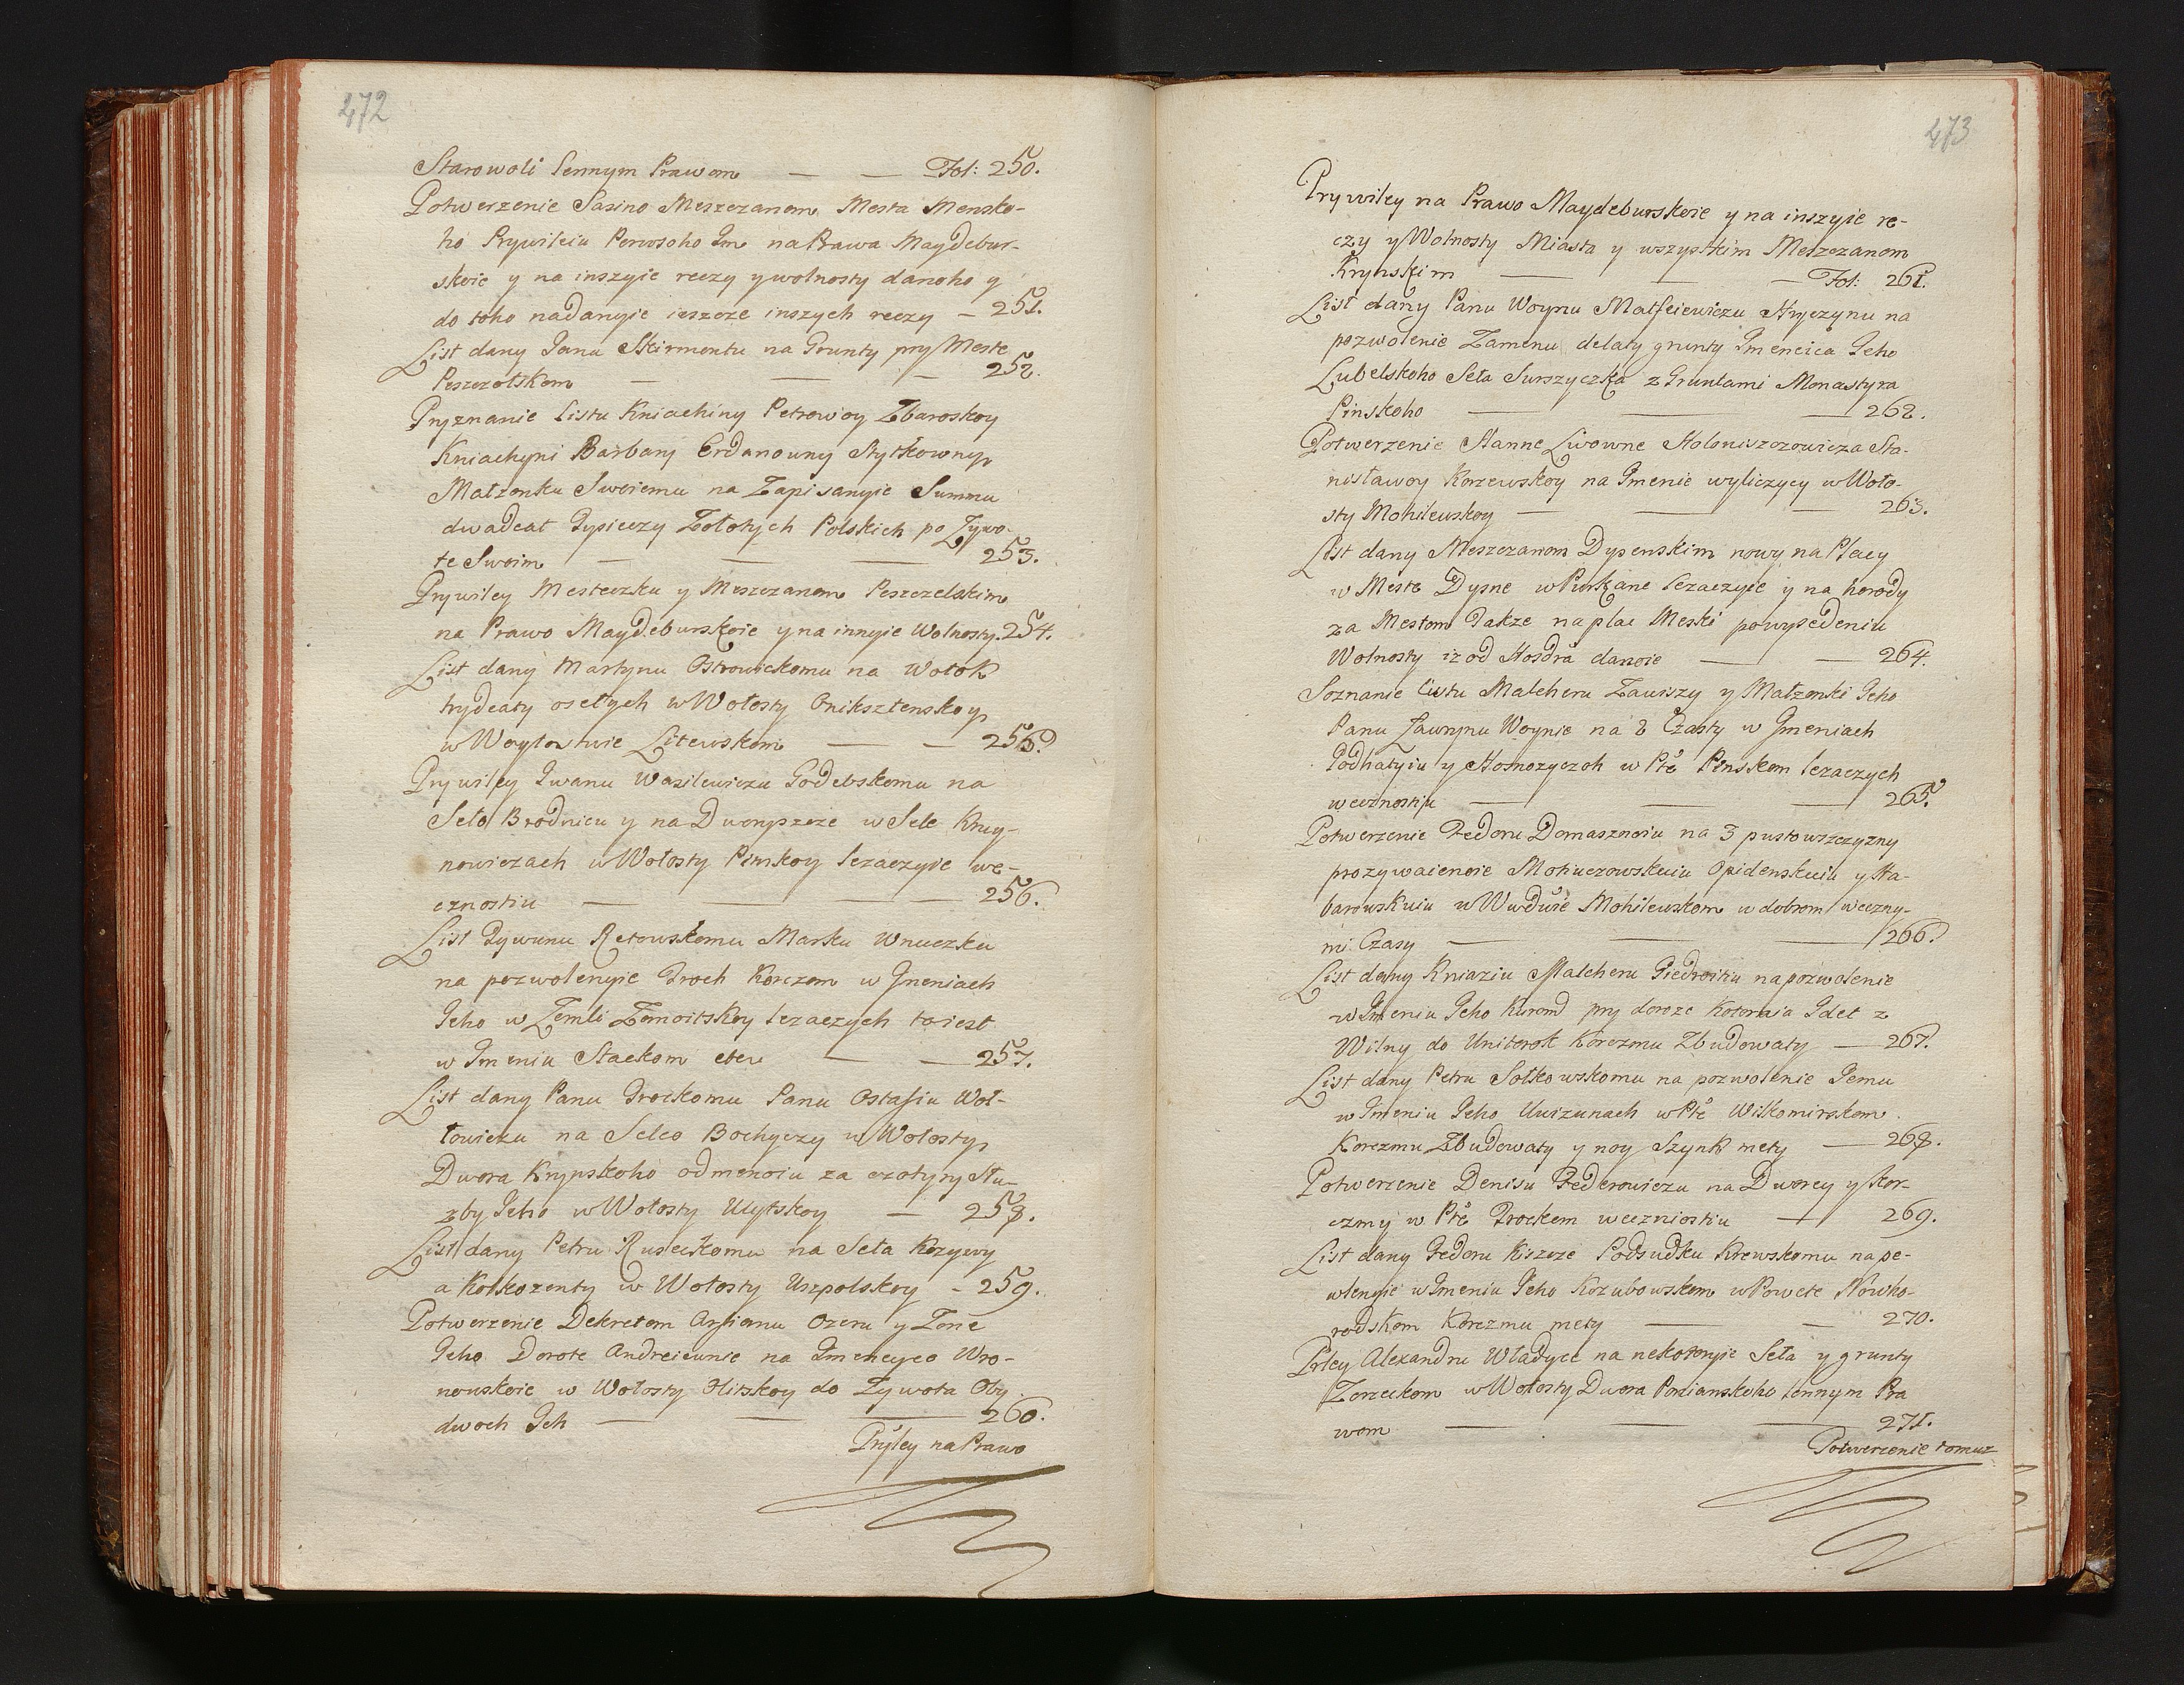 472
Starowoli lennym Prawom — — Fol: 250.
Potwerzenie Sasino Meszczanom Mesta Mensko-
ho Prywileiu Perwsoho Im na Prawa Maydebur-
skoie y na inszyie reczy y wolnosty danoho y
do toho nadanyie ieszcze inszych reczy — 251.
List dany Janu Skirmontu na Grunty pry Meste
Peszczotskom — — — 252.
Pryznanie listu Kniachiny Petrowoy Zbaroskoy
Kniachyni Barbary Erdanouny Stytkowny
Małzonku Swoiemu na Zapisanyie Summu
dwadcat Tysieczy Zołotych Polskich po Zywo-
te Swoim — — — 253.
Prywiley Mesteczku y Meszczanom Peszczelskim
na Prawo Maydeburskoie y na innyie Wolnosty. 254.
List dany Martynu Ostrowickomu na Wołok
trydcaty osełych w Wołosty Oniksztenskoy
w Woytowstwie Litewskom — — 255.
Prywiley Iwanu Wasilewiczu Godebskomu na
Seło Brodnicu y na Dworyszcze w Sele Kruy-
nowiczach w Wołosty Pinskoy lezaczyie we-
cznostiu — — — 256.
List Tywunu Retowskomu Marku Wnuczku
na pozwolenyie Troch Korczom w Imeniach
Jeho w Zemli Zomoitskoy lezaczych to iest
w Imeniu Stackom etcu — — 257.
List dany Panu Trockomu Panu Ostafiu Woł-
łowiczu na Selco Bochyczy w Wołosty
Dwora Krynskoho odmenoiu za czotyry Słu-
zby Jeho w Wołosty Ulytskoy — 258.
List dany Petru Ruseckomu na Seła Kozywy
a Kołkozenty w Wołosty Uszpolskoy - 259.
Potwerzenie Dekretom Arfianu Ozeru y Zone
Jeho Dorote Andreieunie na Imencyco Wro-
nowskoie w Wołosty Olitskoy do Zywota Oby
dwoch Jch — — — 260.
Pryley na Prawo
473
Prywiley na Prawo Maydeburskoie y na inszyie re-
czy y Wolnosty Miasta y wszystkim Meszczanom
Krynskim — — — Fol: 261.
List dany Panu Woynu Matfeiewiczu Hryczynu na
pozwolenie Zamenu delaty grunty Imencica Jeho
Lubelskoho Seła Surszyczka z Gruntami Monastyra
Pinskoho — — — 262.
Potwerzenie Hanne Lwowne Holoniszczowicza Sta-
nisławoy Korzewskoy na Imenie wyliczycy w Woło-
sty Mohilewskoy — — — 263.
List dany Meszczanom Dysenskim nowy na Placy
w Meste Dysne w Parkane lezaczyie y na horody
za Mestom Takze na plac Meski po wysedeniu
Wolnosty iz od Hosdra danoie — — 264.
Soznanie listu Malcheru Zawiszy y Małzonki Jeho
Panu Ławrynu Woynie na 2 Czasty w Imeniach
Podhatyiu y Homozyczoh w Pte Pinskom lezaczych
wecznostiu — — — 265.
Potwerzenie Fedoru Domasznoiu na 3 pustowszczyzny
prozywaiemoie Mohuczowskuiu Opidenskuiu y Ha-
barowskuiu w Wwdure Mohilewskom w dobrom weczny-
mi Czasy — — — 266.
List dany Kniaziu Malcheru Giedroitiu na pozwolenie
w Imeniu Jeho Kurond pry doroze Kotoraia Idet z
Wilny do Uniterok Korczmu Zbudowaty — 267.
List dany Petru Sołkowskomu na pozwolenie Jemu
w Imeniu Jeho Uwizunach w Pte Wiłkomirskom
Korczmu Zbudowaty y noy Szynk mety — 268.
Potwerzenie Denisu Federowiczu na Dworcy y Kor-
czmy w Pte Trockom weczniostiu — 269.
List dany Fedoru Kiszcze Podsudku Krewskomu na po-
wlenyie w Imeniu Jeho Kozubowskom w Powete Nowho-
rodskom Korczmu mety — — 270.
Prley Alexandru Władyce na nekotoryie Seła y grunty
Zarzeckom w Wołosty Dwora Ponianskoho lennym Pra
wom — — — 271.
Potwerzenie tomuz